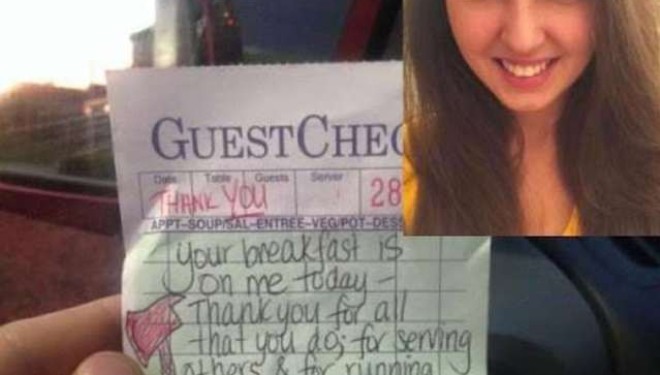 GUESTCHEC
Date Table Guests Server
THANK YOU 28
APPT-SOUP/SAL-ENTREE-VEG/POT-DESS
Your breakfast is
on me today -
Thank you for all
that you do; for serving
others & for running